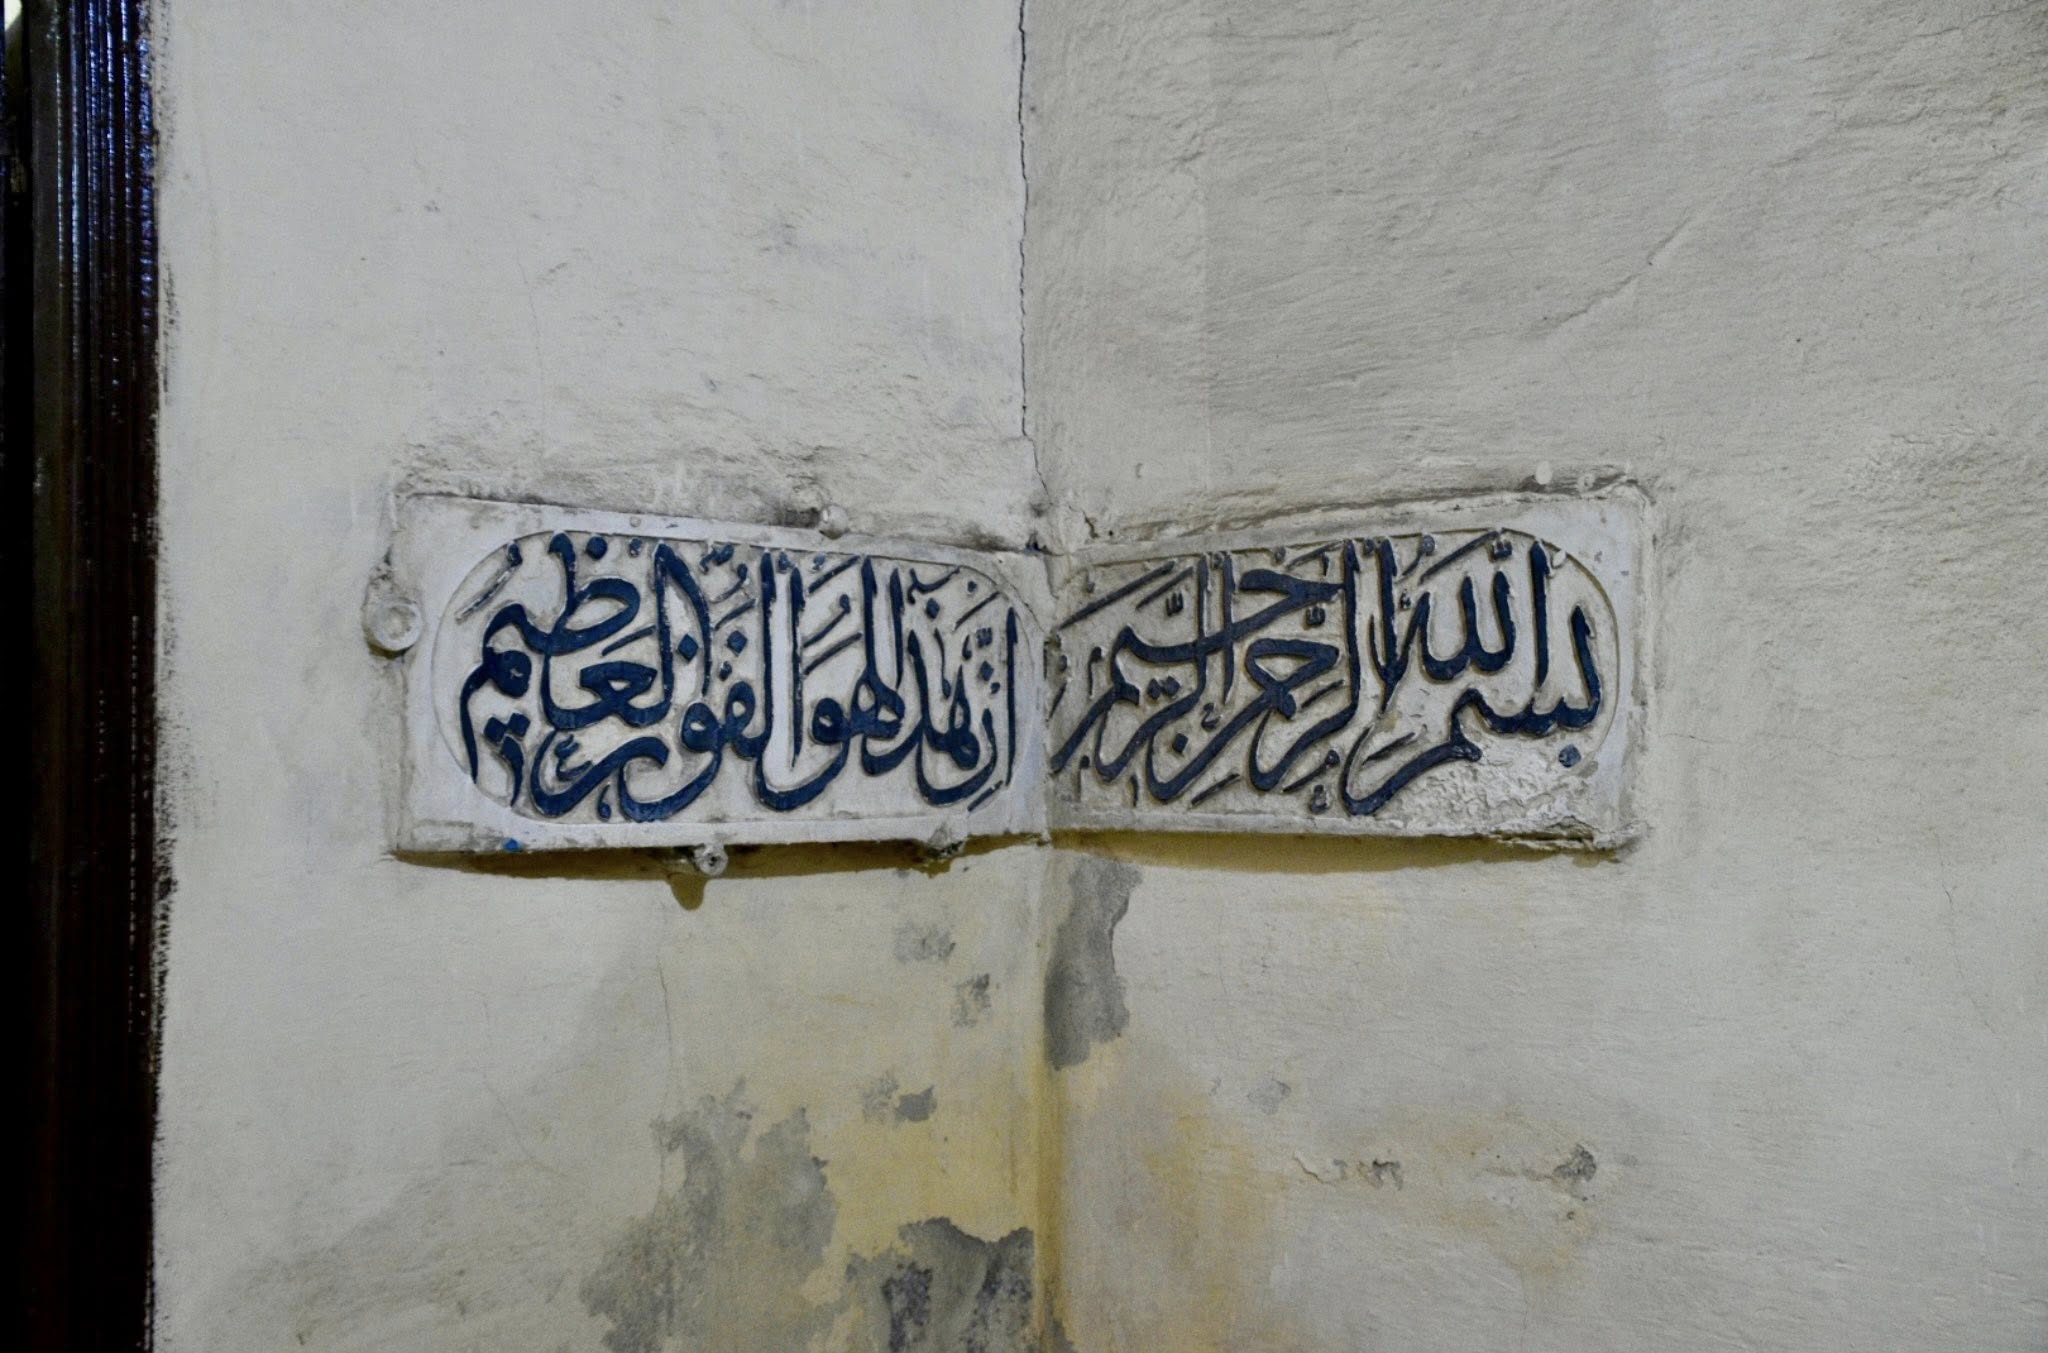 بسم الله الرحمن الرحيم
ان هذا لهو الفوز العظيم